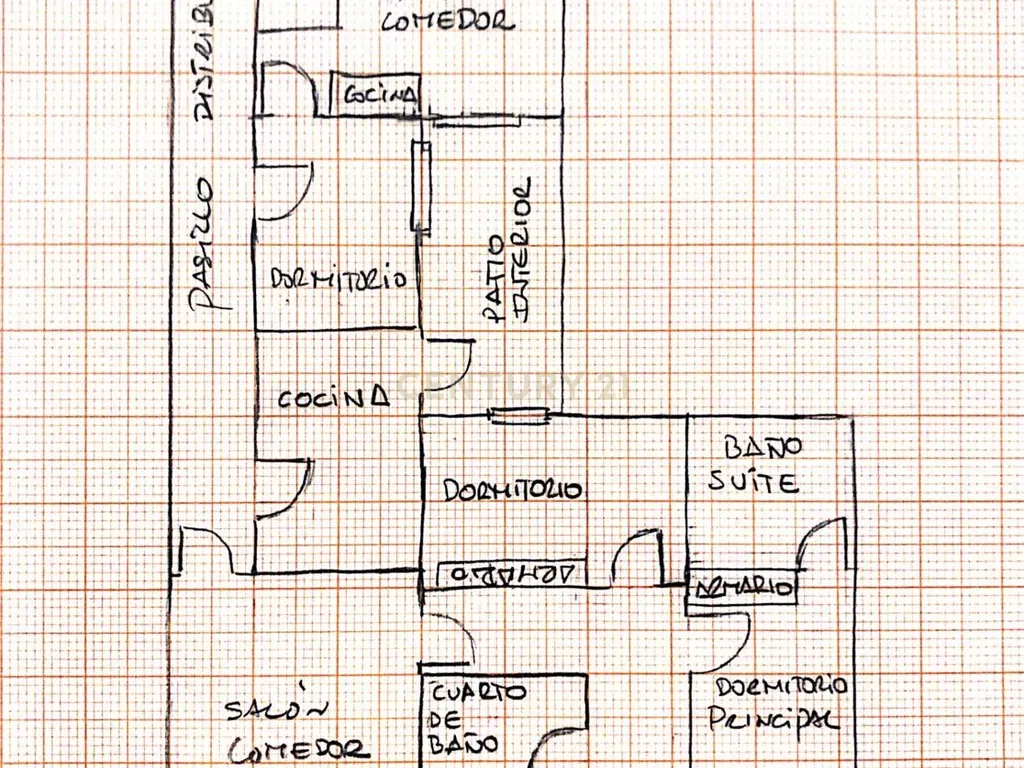 COMEDOR
PASILLO DISTRIBU
COCINA
PATIO
INTERIOR
DORMITORIO
COCINA
CENTURY 21
BAÑO
SUÍTE
DORMITORIO
ARMARIO
ARMARIO
SALÓN
COMEDOR
CUARTO
DE
BAÑO
DORMITORIO
PRINCIPAL